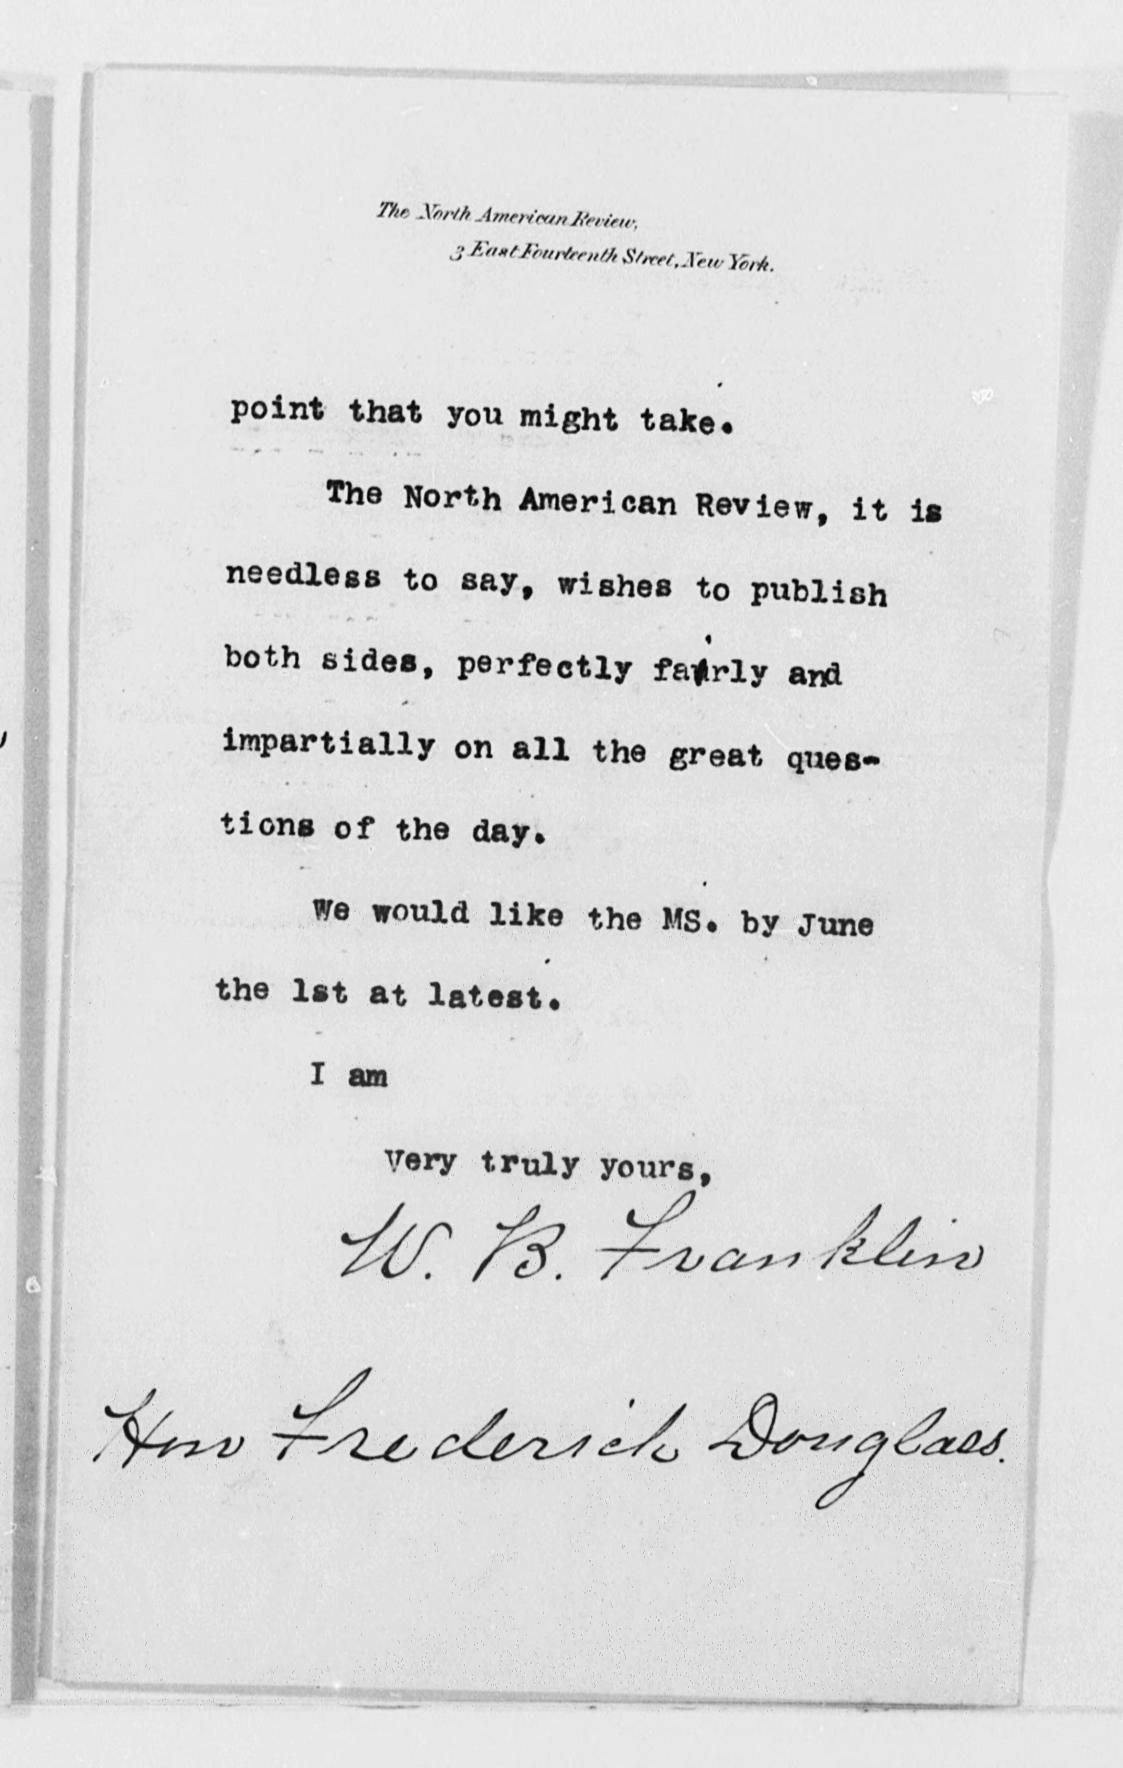 The North American Review,
3 East Fourteenth Street, New York.
point that you might take.
The North American Review, it is
needless to say, wishes to publish
both sides, perfectly fairly and
impartially on all the great ques-
tions of the day.
We would like the MS. by June
the 1st at latest.
I am
Very truly yours,
W. B. Franklin
Hon Frederick Douglass.